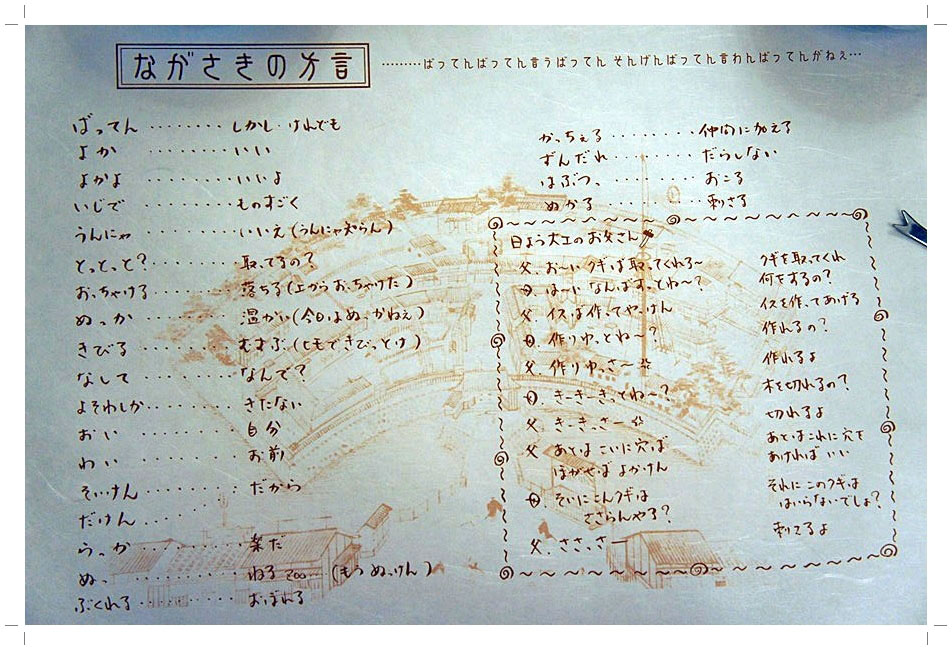 ながさきの方言
………ばってんばってん言うばってん そんげんばってん言わんばってんがねぇ…
ばってん ········ しかし·けれども
よか ········ いい
よかよ ········ いいよ
いじで ········ ものすごく
うんにゃ ········ いいえ(うんにゃ知らん)
とっとっと? ········ 取ってるの?
おっちゃける ········ 落ちる(上からおっちゃけた)
ぬっか ········ 温かい(今日はぬっかねぇ)
きびる ········ むすぶ(ヒモできびっとけ)
なして ········ なんで?
よそわしか ········ きたない
おい ········ 自分
わい ········ お前
そいけん ········ だから
だけん ······
らっか ········ 楽だ
ぬっ ········ ねる zoo… (もうぬっけん)
ぶくれる ········ おぼれる
かっちぇる ········ 仲間に加える
ずんだれ ········ だらしない
はぶつっ ········ おこる
ぬかる ········ 刺さる
日よう大工のお父さん
父. お〜いクギば取ってくれろ〜 クギを取ってくれ
母. は〜い なんばすっとね〜? 何をするの?
父. イスば作ってやっけん イスを作ってあげる
母. 作りゆっとね〜? 作れるの?
父. 作りゆっさ〜 作れるよ
母. きーきーきっとね〜? 木を切れるの?
父. きーきっさー 切れるよ
父. あとは こいに穴ば あとはこれに穴を
ほがせば よかけん あければいい
母. そいにこんクギは それにこのクギは
ささらんやろ? はいらないでしょ?
父. さささ— 刺さるよ